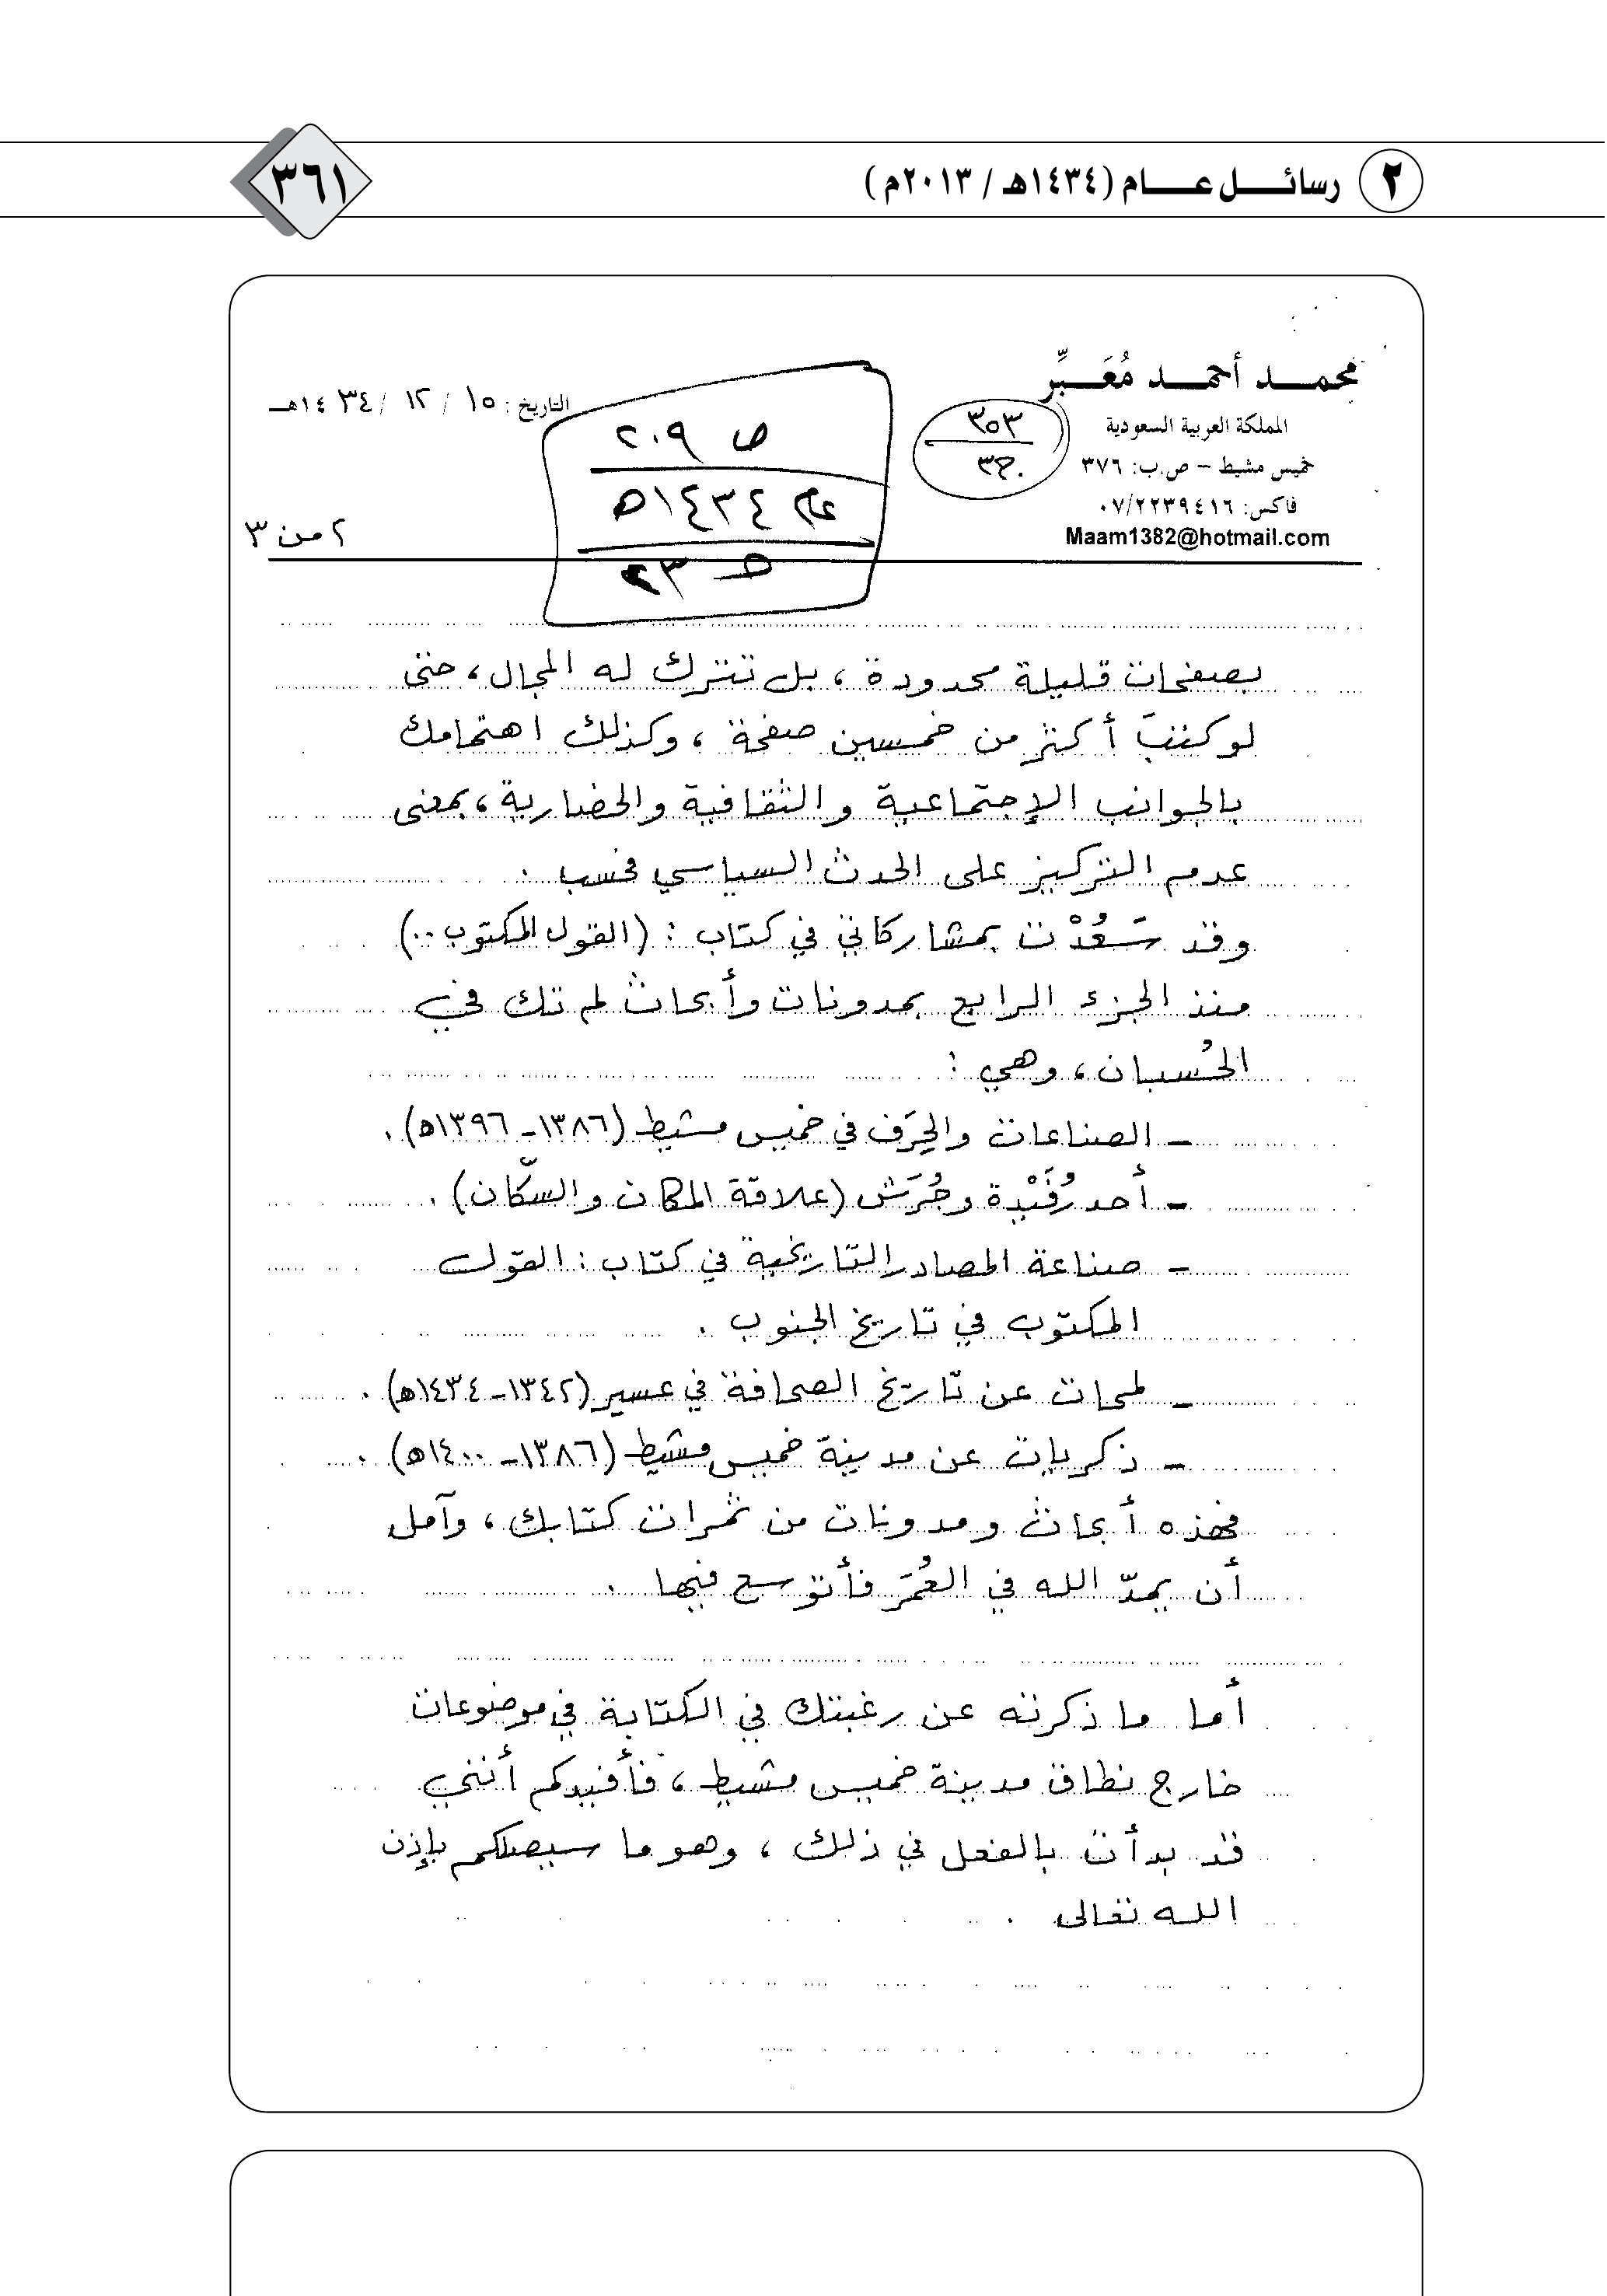 ٢ رسائل عام (١٤٣٤هـ / ٢٠١٣م)
٣٦١
محمد أحمد مُعَبِّر
المملكة العربية السعودية
خميس مشيط – ص.ب: ٣٧٦
فاكس: ٠٧/٢٢٣٩٤١٦
Maam1382@hotmail.com
٣٥٣
ص ٢٠٩
عام ١٤٣٤ه
التاريخ: ١٥ / ١٢ / ١٤٣٤هـ
٢ من ٣
بصفحات قليلة محدودة، بل تترك له المجال، حتى
لو كتبَ أكثر من خمسين صفحة، وكذلك اهتمامك
بالجوانب الإجتماعية والثقافية والحضارية، بمعنى
عدم التركيز على الحدث السياسي فحسب .
وقد سَعُدْت بمشاركاتي في كتاب: (القول المكتوب..)
منذ الجزء الرابع بمدونات وأبحاث لم تك في
الحُسبان، وهي :
- الصناعات والحِرَف في خميس مشيط (١٣٨٦-١٣٩٦ه) .
- أحد رُفَيْدة وجُرَش (علاقة المكان والسكّان) .
- صناعة المصادر التاريخية في كتاب: القول
المكتوب في تاريخ الجنوب .
- لمحات عن تاريخ الصحافة في عسير (١٣٤٢-١٤٣٤ه) .
- ذكريات عن مدينة خميس مشيط (١٣٨٦-١٤٠٠ه) .
فهذه أبحاث ومدونات من ثمرات كتابك، وآمل
أن يمدّ الله في العُمَر فأتوسع فيها .
أما ما ذكرته عن رغبتك في الكتابة في موضوعات
خارج نطاق مدينة خميس مشيط، فأفيدكم أنني
قد بدأت بالفعل في ذلك، وهو ما سيصلكم بإذن
الله تعالى .